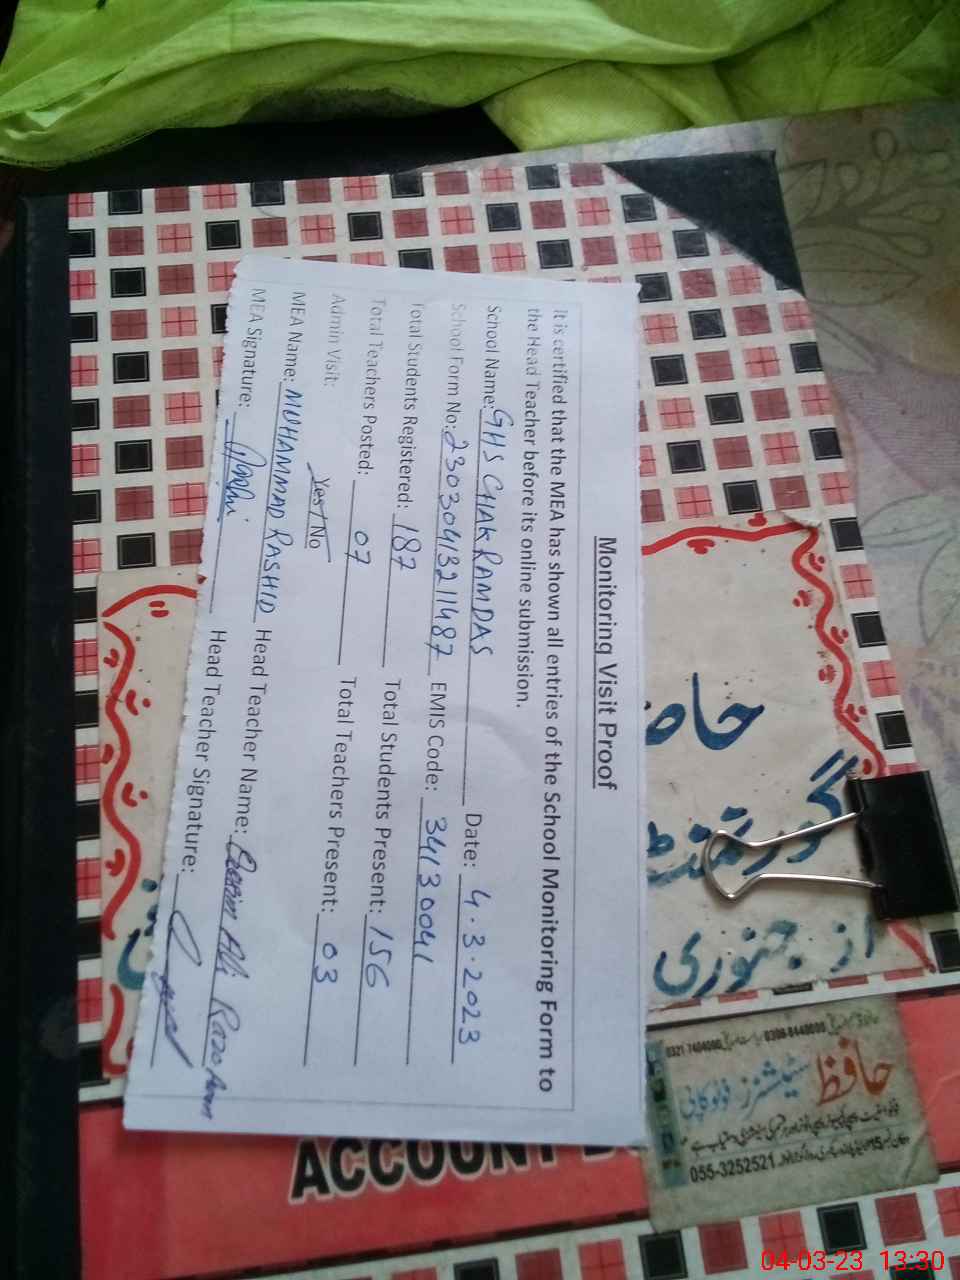 Monitoring Visit Proof
It is certified that the MEA has shown all entries of the School Monitoring Form to
the Head Teacher before its online submission.
School Name: GHS CHAK RAMDAS Date: 4.3.2023
School Form No: 2303041321487 EMIS Code: 34130041
Total Students Registered: 187 Total Students Present: 156
Total Teachers Posted: 07 Total Teachers Present: 03
Admin Visit: Yes/No
MEA Name: MUHAMMAD RASHID Head Teacher Name: Ali Raza
MEA Signature: Head Teacher Signature:
گورنمنٹ
از جنوری
ACCOUNT
0321 7404000 0306-6440000
حافظ سٹیشنرز فوٹو کاپی
055-3252521
04-03-23 13:30